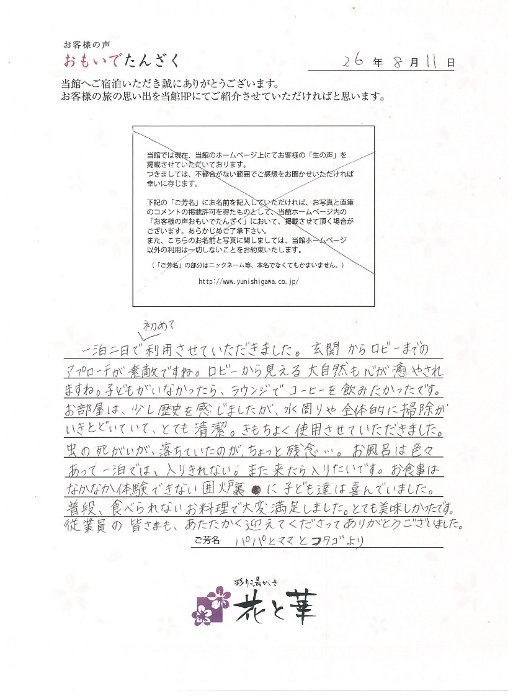 お客様の声
おもいでたんざく
26年8月11日
当館へご宿泊いただき誠にありがとうございます。
お客様の旅の思い出を当館HPにてご紹介させていただければと思います。
当館では現在、当館のホームページ上にてお客様の「生の声」を
掲載させていただいております。
つきましては、不都合がない範囲でご感想をお聞かせいただければ
幸いに存じます。
下記の「ご芳名」にお名前を記入していただければ、お写真と直筆
のコメントの掲載許可を得たものとして、当館ホームページ内の
「お客様の声おもいでたんざく」において、掲載させて頂く場合が
ございます。あらかじめご了承下さい。
また、こちらのお名前と写真に関しましては、当館ホームページ
以外の利用は一切しないことをお約束いたします。
(「ご芳名」の部分はニックネーム等、本名でなくてもかまいません。)
http://www.yunishigawa.co.jp/
初めて
一泊二日で利用させていただきました。玄関からロビーまでの
アプローチが素敵ですね。ロビーから見える大自然も心が癒やされ
ますね。子どもがいなかったら、ラウンジでコーヒーを飲みたかったです。
お部屋は、少し歴史を感じましたが、水周りや全体的に掃除が
いきとどいていて、とても清潔。きもちよく使用させていただきました。
虫の死がいが、落ちていたのが、ちょっと残念…。お風呂は色々
あって一泊では、入りきれない。また来たら入りたいです。お食事は
なかなか体験できない囲炉裏に子ども達は喜んでいました。
普段、食べられないお料理で大変満足しました。とても美味しかったです。
従業員の皆さまも、あたたかく迎えてくださってありがとうございました。
ご芳名 パパとママとフタゴより
花と華